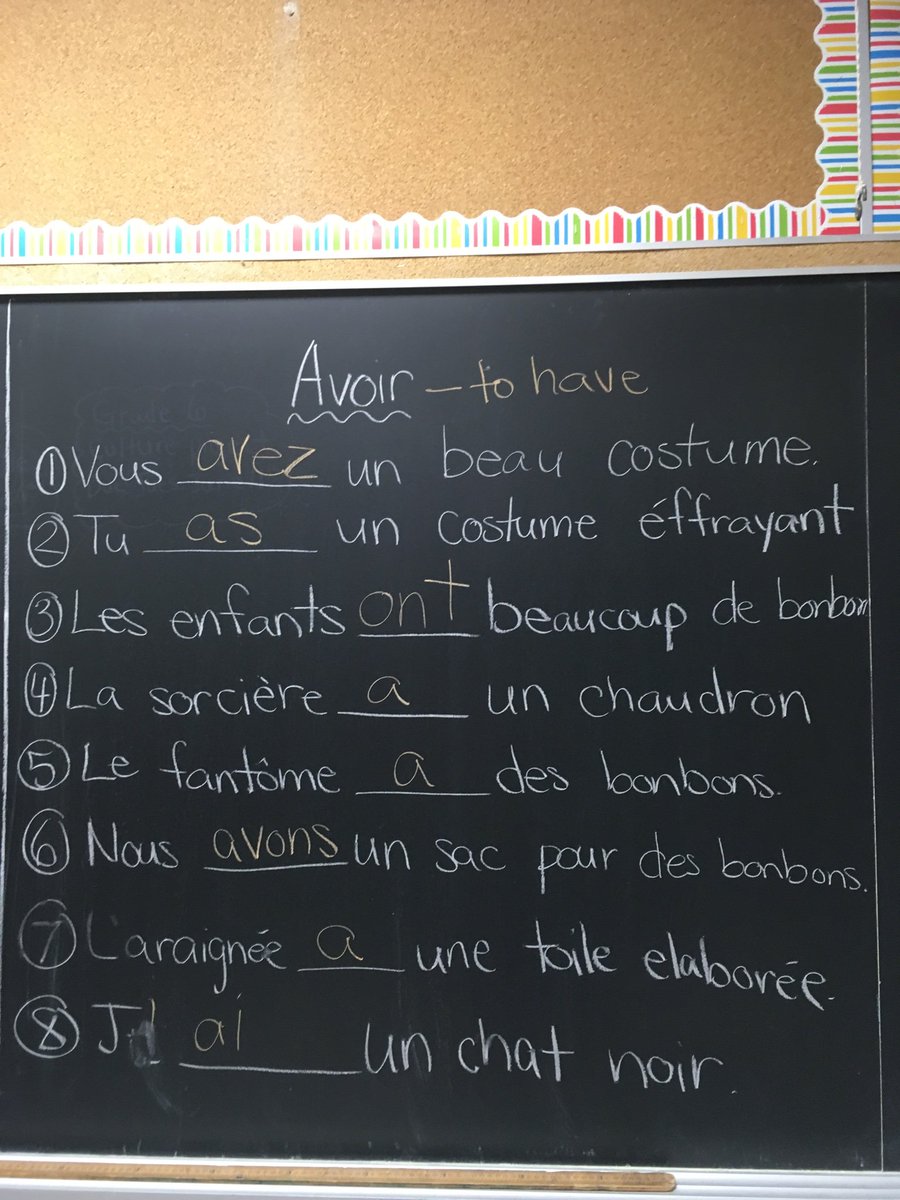 Avoir – to have
① Vous avez un beau costume.
② Tu as un costume éffrayant
③ Les enfants ont beaucoup de bonbon
④ La sorcière a un chaudron
⑤ Le fantôme a des bonbons.
⑥ Nous avons un sac pour des bonbons.
⑦ L'araignée a une toile elaborée.
⑧ J' ai un chat noir.